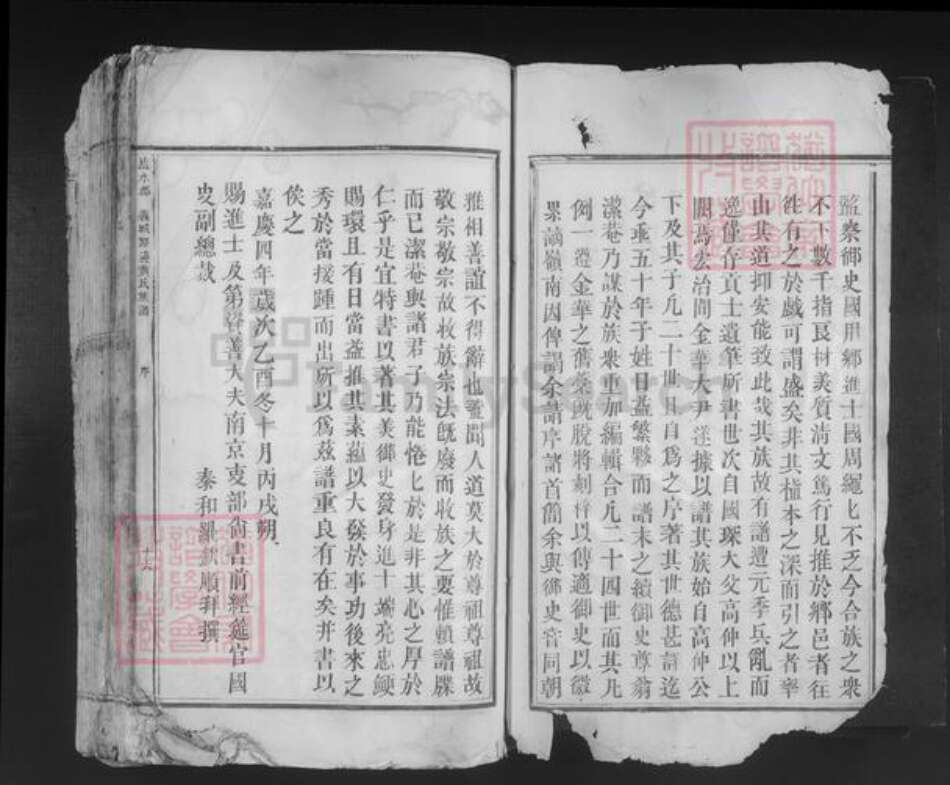 監察御史國用鄉進士國周繩匕不乏今合族之衆
不下數千指良材美質清文篤行見推於鄉邑者往
往有之於戲可謂盛矣非其植本之深而引之者率
由其道抑安能致此哉其族故有譜遭元季兵亂而
逸僅存貢士遺筆所書世次自國琛大父高仲以上
闕焉宏治間金華大尹 據以譜其族始自高仲公
下及其子凡二十世且自為之序著其世德甚詳迄
今垂五十年于姓日益繁夥而譜未之續御史尊翁
潔菴乃謀於族衆重加編輯合凡二十四世而其凡
例一遵金華之舊稾既脫將刻梓以傳適御史以徵
累謫嶺南因俾謂余請序諸首簡余與御史音同朝
雅相善誼不得辭也葢聞人道莫大於尊祖尊祖故
敬宗敬宗故收族宗法既廢而收族之要惟賴譜牒
而已潔菴與諸君子乃能惓匕於是非其心之厚於
仁乎是宜特書以著其美御史發身進士端亮忠鯁
賜環且有日當益推其素蘊以大發於事功後來之
秀於當接踵而出所以爲茲譜重良有在矣并書以
俟之
嘉慶四年歲次乙酉冬十月丙戌朔
賜進士及第資善大夫南京吏部尚書前經筵官國
史副總裁
泰和羅欽順拜撰
序
十六